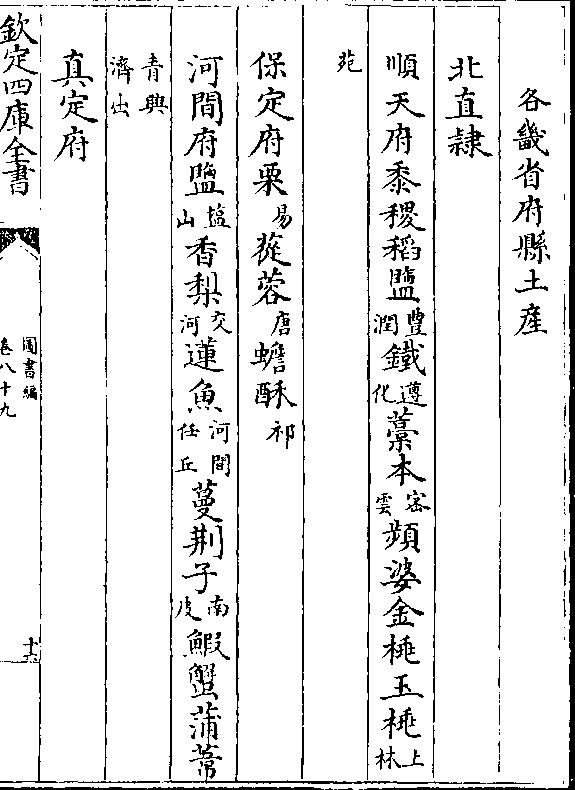 各畿省府縣土産
北直隸
順天府黍稷稻鹽豐潤鐵遵化藁本密雲頻婆金桃玉桃上林
苑
保定府栗易蓯蓉唐蟾酥祁
河間府鹽鹽山香梨交河蓮魚河間任丘蔓荆子南皮鰕蟹蒲葦
青興濟出
真定府
欽定四庫全書
圖書編
卷八十九